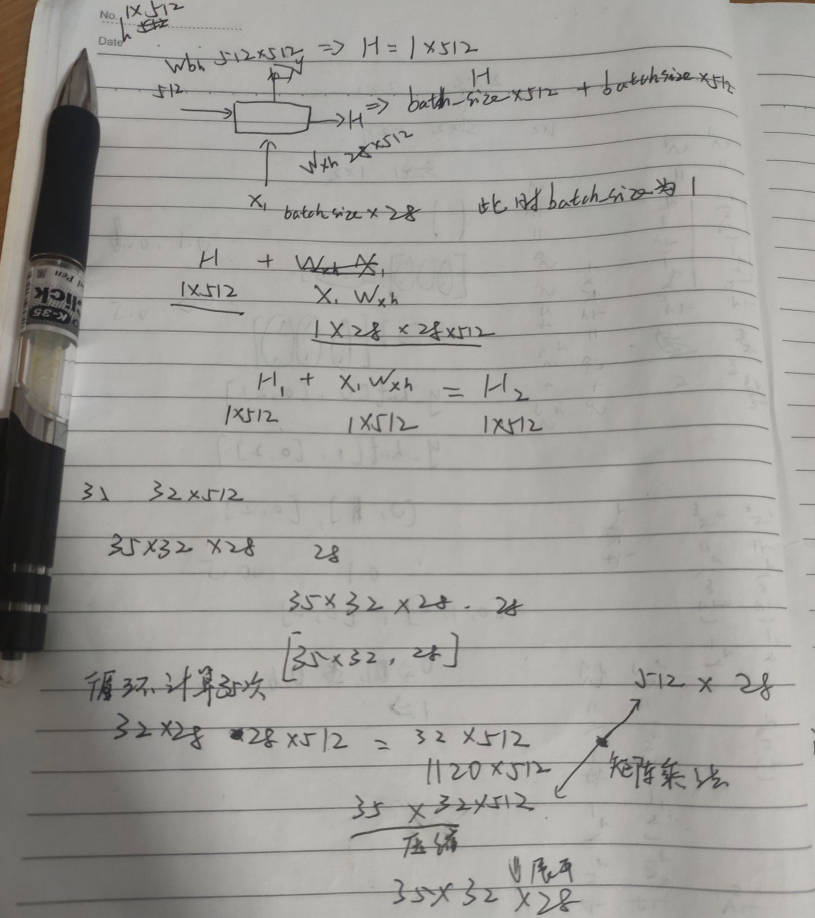 No. 1×512
Date h
Whh 512×512 => H = 1×512
y H
512 H => batch_size×512 + batchsize×512
Wxh 28×512
X₁ batchsize×28 此时batch_size为1
H +
1×512 X₁ Wxh
1×28 × 28×512
H₁ + X₁Wxh = H₂
1×512 1×512 1×512
32×512
35×32×28 28
35×32×28 · 28
[35×32, 28]
循环计算35次 512 × 28
32×28 28×512 = 32×512
1120×512 矩阵乘法
35 × 32×512
压缩
⇓展开
35×32 ×28
K-35
click